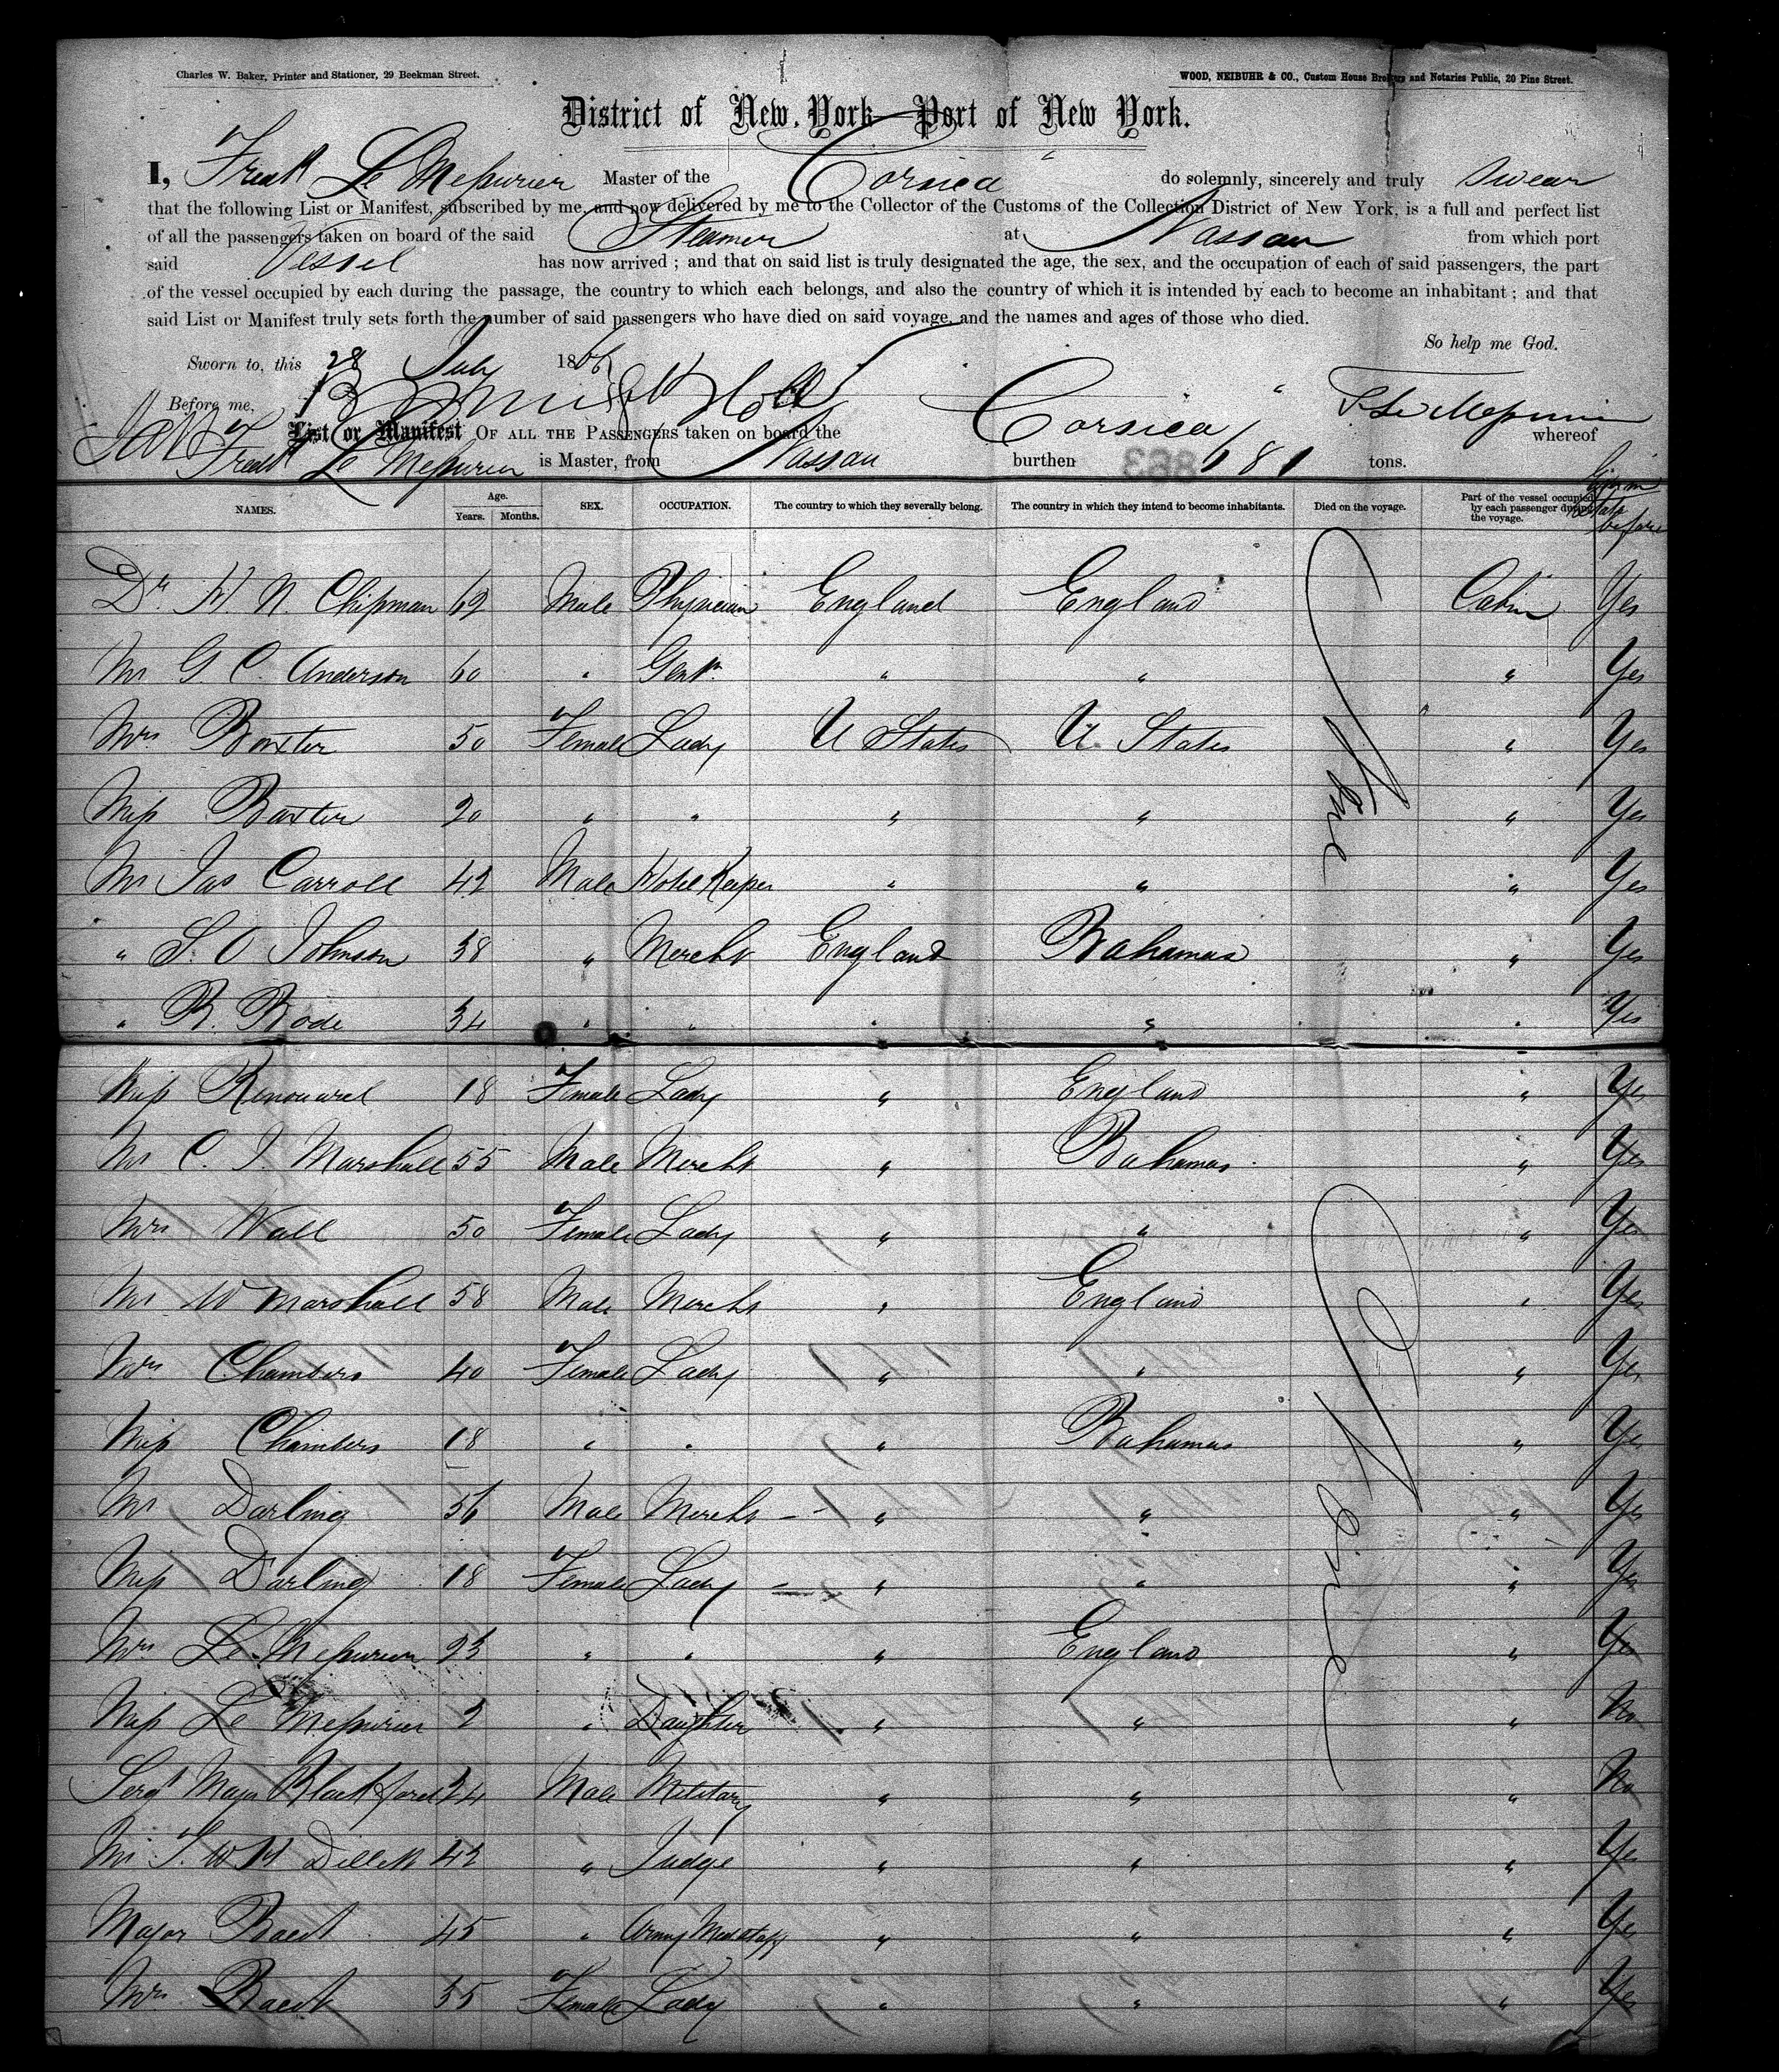 Charles W. Baker, Printer and Stationer, 29 Beekman Street. WOOD, NEIBUHR & CO., Custom House Brokers and Notaries Public, 20 Pine Street.
District of New York—Port of New York.
I, Fredk Le Mesurier Master of the Corsica do solemnly, sincerely and truly swear
that the following List or Manifest, subscribed by me, and now delivered by me to the Collector of the Customs of the Collection District of New York, is a full and perfect list
of all the passengers taken on board of the said Steamer at Nassau from which port
said Vessel has now arrived; and that on said list is truly designated the age, the sex, and the occupation of each of said passengers, the part
of the vessel occupied by each during the passage, the country to which each belongs, and also the country of which it is intended by each to become an inhabitant; and that
said List or Manifest truly sets forth the number of said passengers who have died on said voyage, and the names and ages of those who died.
So help me God.
Sworn to, this 28 July 1866
Before me, F Le Mesurier
List or Manifest OF ALL THE PASSENGERS taken on board the Corsica whereof
Fredk Le Mesurier is Master, from Nassau burthen 681 tons.
NAMES. Age. Years. Months. SEX. OCCUPATION. The country to which they severally belong. The country in which they intend to become inhabitants. Died on the voyage. Part of the vessel occupied by each passenger during the voyage. before
Dr W. N. Chipman 69 Male Physician England England Cabin Yes
Mr G. C. Anderson 60 " Gent. " " " Yes
Mrs Baxter 50 Female Lady U States U States " Yes
Miss Baxter 20 " " " " " Yes
None
Mr Jas Carroll 42 Male Hotel Keeper " " " Yes
" S. O. Johnson 38 " Mercht England Bahamas " Yes
" R. Rode 34 " " " " " Yes
Miss Renouard 18 Female Lady " England " Yes
Mr C. J. Marshall 55 Male Mercht " Bahamas " Yes
Mrs Wall 50 Female Lady " " " Yes
Mr W Marshall 58 Male Mercht " England " Yes
Mrs Chambers 40 Female Lady " " " Yes
Miss Chambers 18 " " " Bahamas " Yes
Mr Darling 56 Male Mercht " " " Yes
None
Miss Darling 18 Female Lady " " " Yes
Mrs Le Mesurier 23 " " " England " Yes
Miss Le Mesurier 2 " Daughter " " " No
Sergt Major Blackford 34 Male Military " " " No
Mr T. W. H. Dillett 42 " Judge " " " Yes
Major 45 " Army Med Staff " " " Yes
Mrs 35 Female Lady " " " Yes